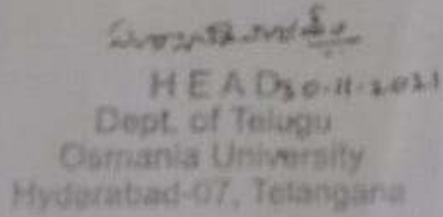 HEAD 30-11-2021
Dept. of Telugu
Osmania University
Hyderabad-07, Telangana